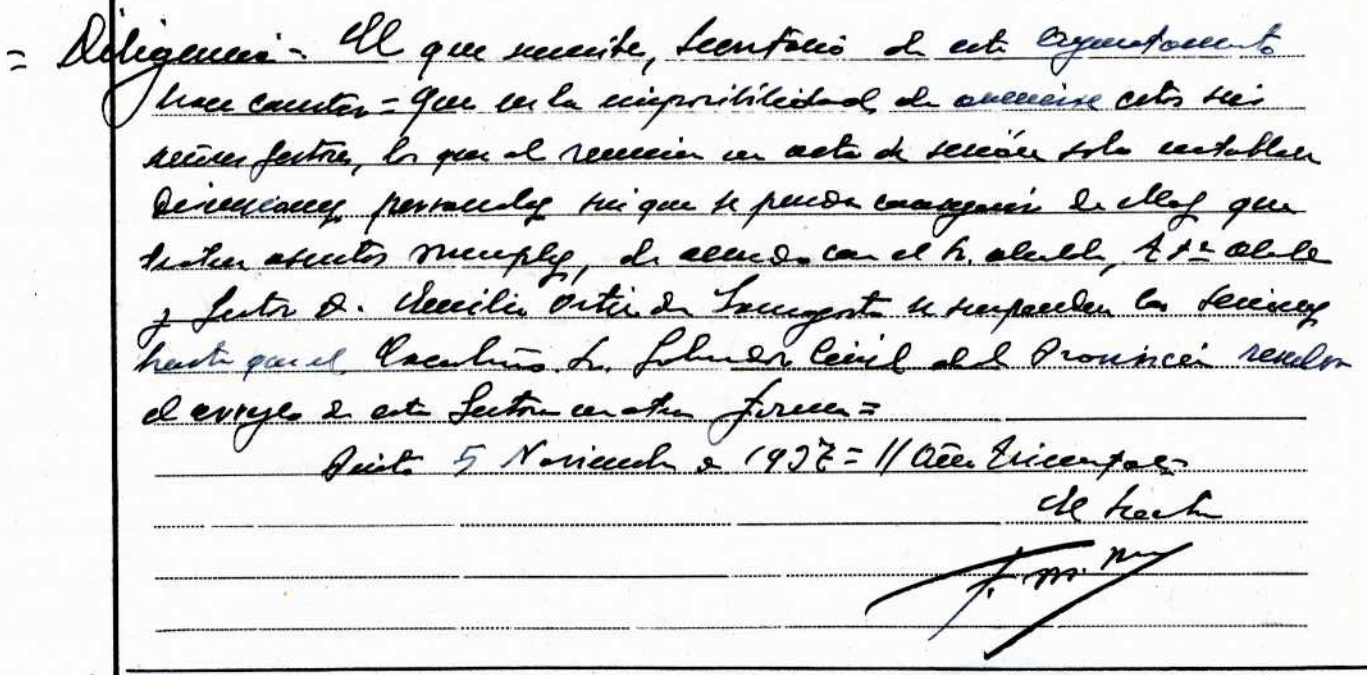 = Diligencia = El que suscribe, Secretario de este Ayuntamiento
hace constar = Que en la imposibilidad de avenirse estos seis
señores gestores, los que al reunirse en acta de sesión solo entablan
Discusiones personales sin que se pueda conseguir de ellos que
traten asuntos, de acuerdo con el Sr. alcalde, alcalde
y Gestor D. Emilio Ortiz de se suspenden las sesiones
hasta que el Excelentísimo Sr. Gobernador Civil de la Provincia resuelva
el arreglo de esta Gestora en otra forma =
5 Noviembre de 1937 = II Año Triunfal =
El Secretario